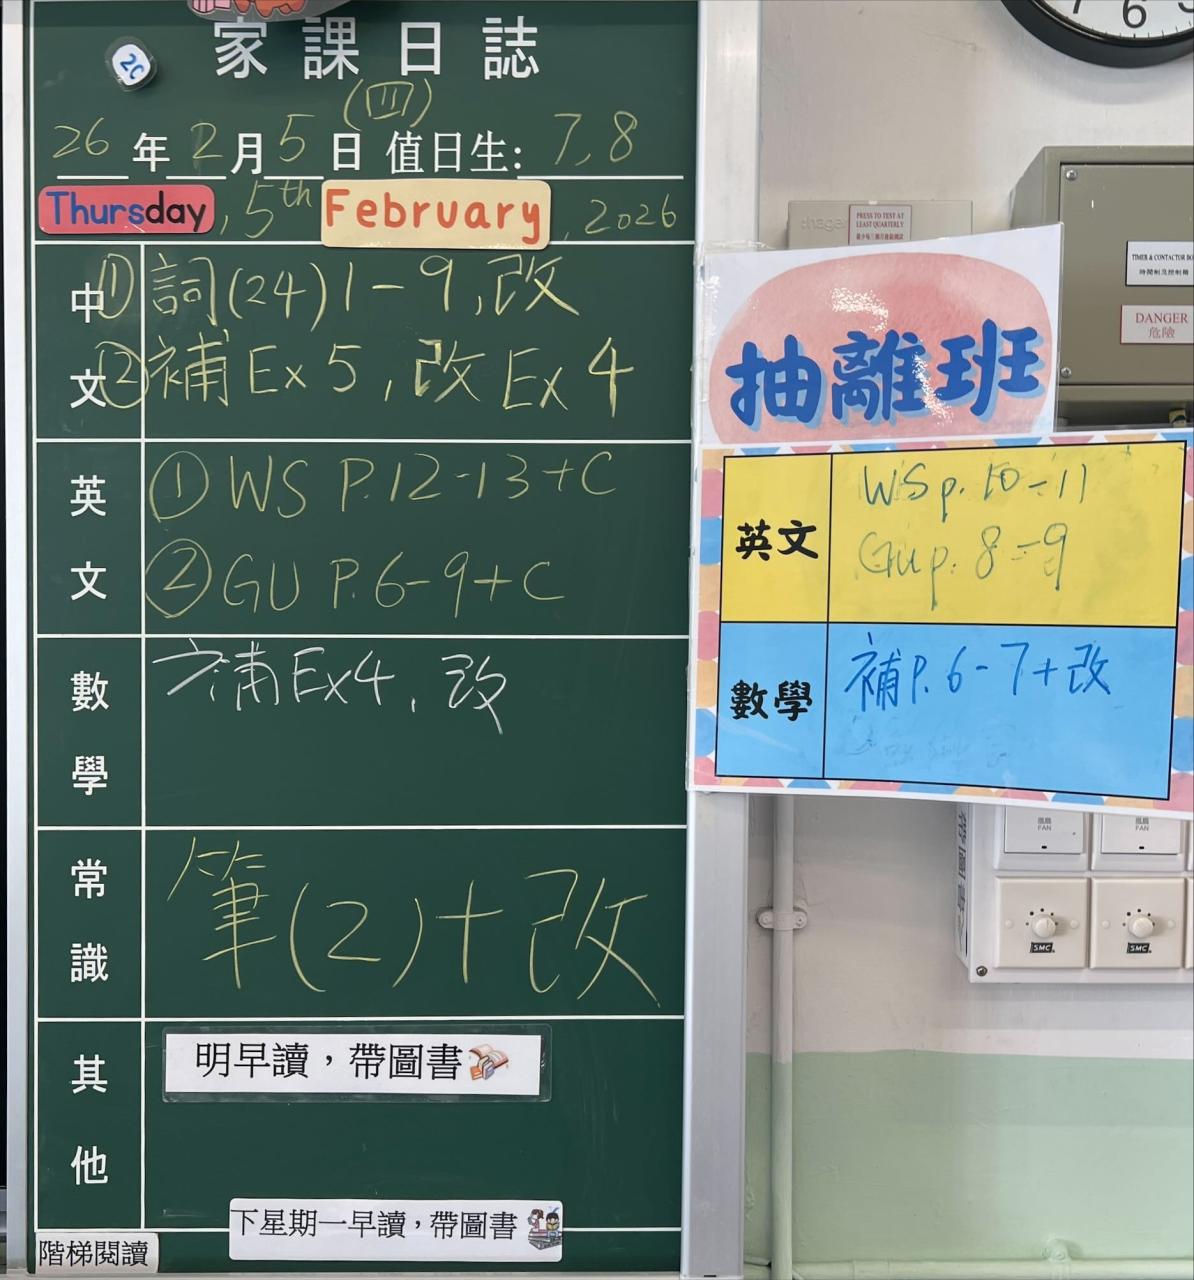 家課日誌
2C
26年2月5日(四) 值日生: 7, 8
Thursday, 5th February, 2026
中文
① 詞(24)1-9,改
② 補Ex5,改Ex4
英文
① WS P.12-13+C
② GU P.6-9+C
數學
補Ex4,改
常識
筆(2)+改
其他
明早讀,帶圖書
下星期一早讀,帶圖書
階梯閱讀
抽離班
英文
WS p. 10-11
GU p. 8-9
數學
補P.6-7+改
7 6 5
chager
PRESS TO TEST AT
LEAST QUARTERLY
TIMER & CONTACTOR BO
時間制及控制箱
DANGER
危險
風扇
FAN
風扇
FAN
帶圖書
SMC
SMC